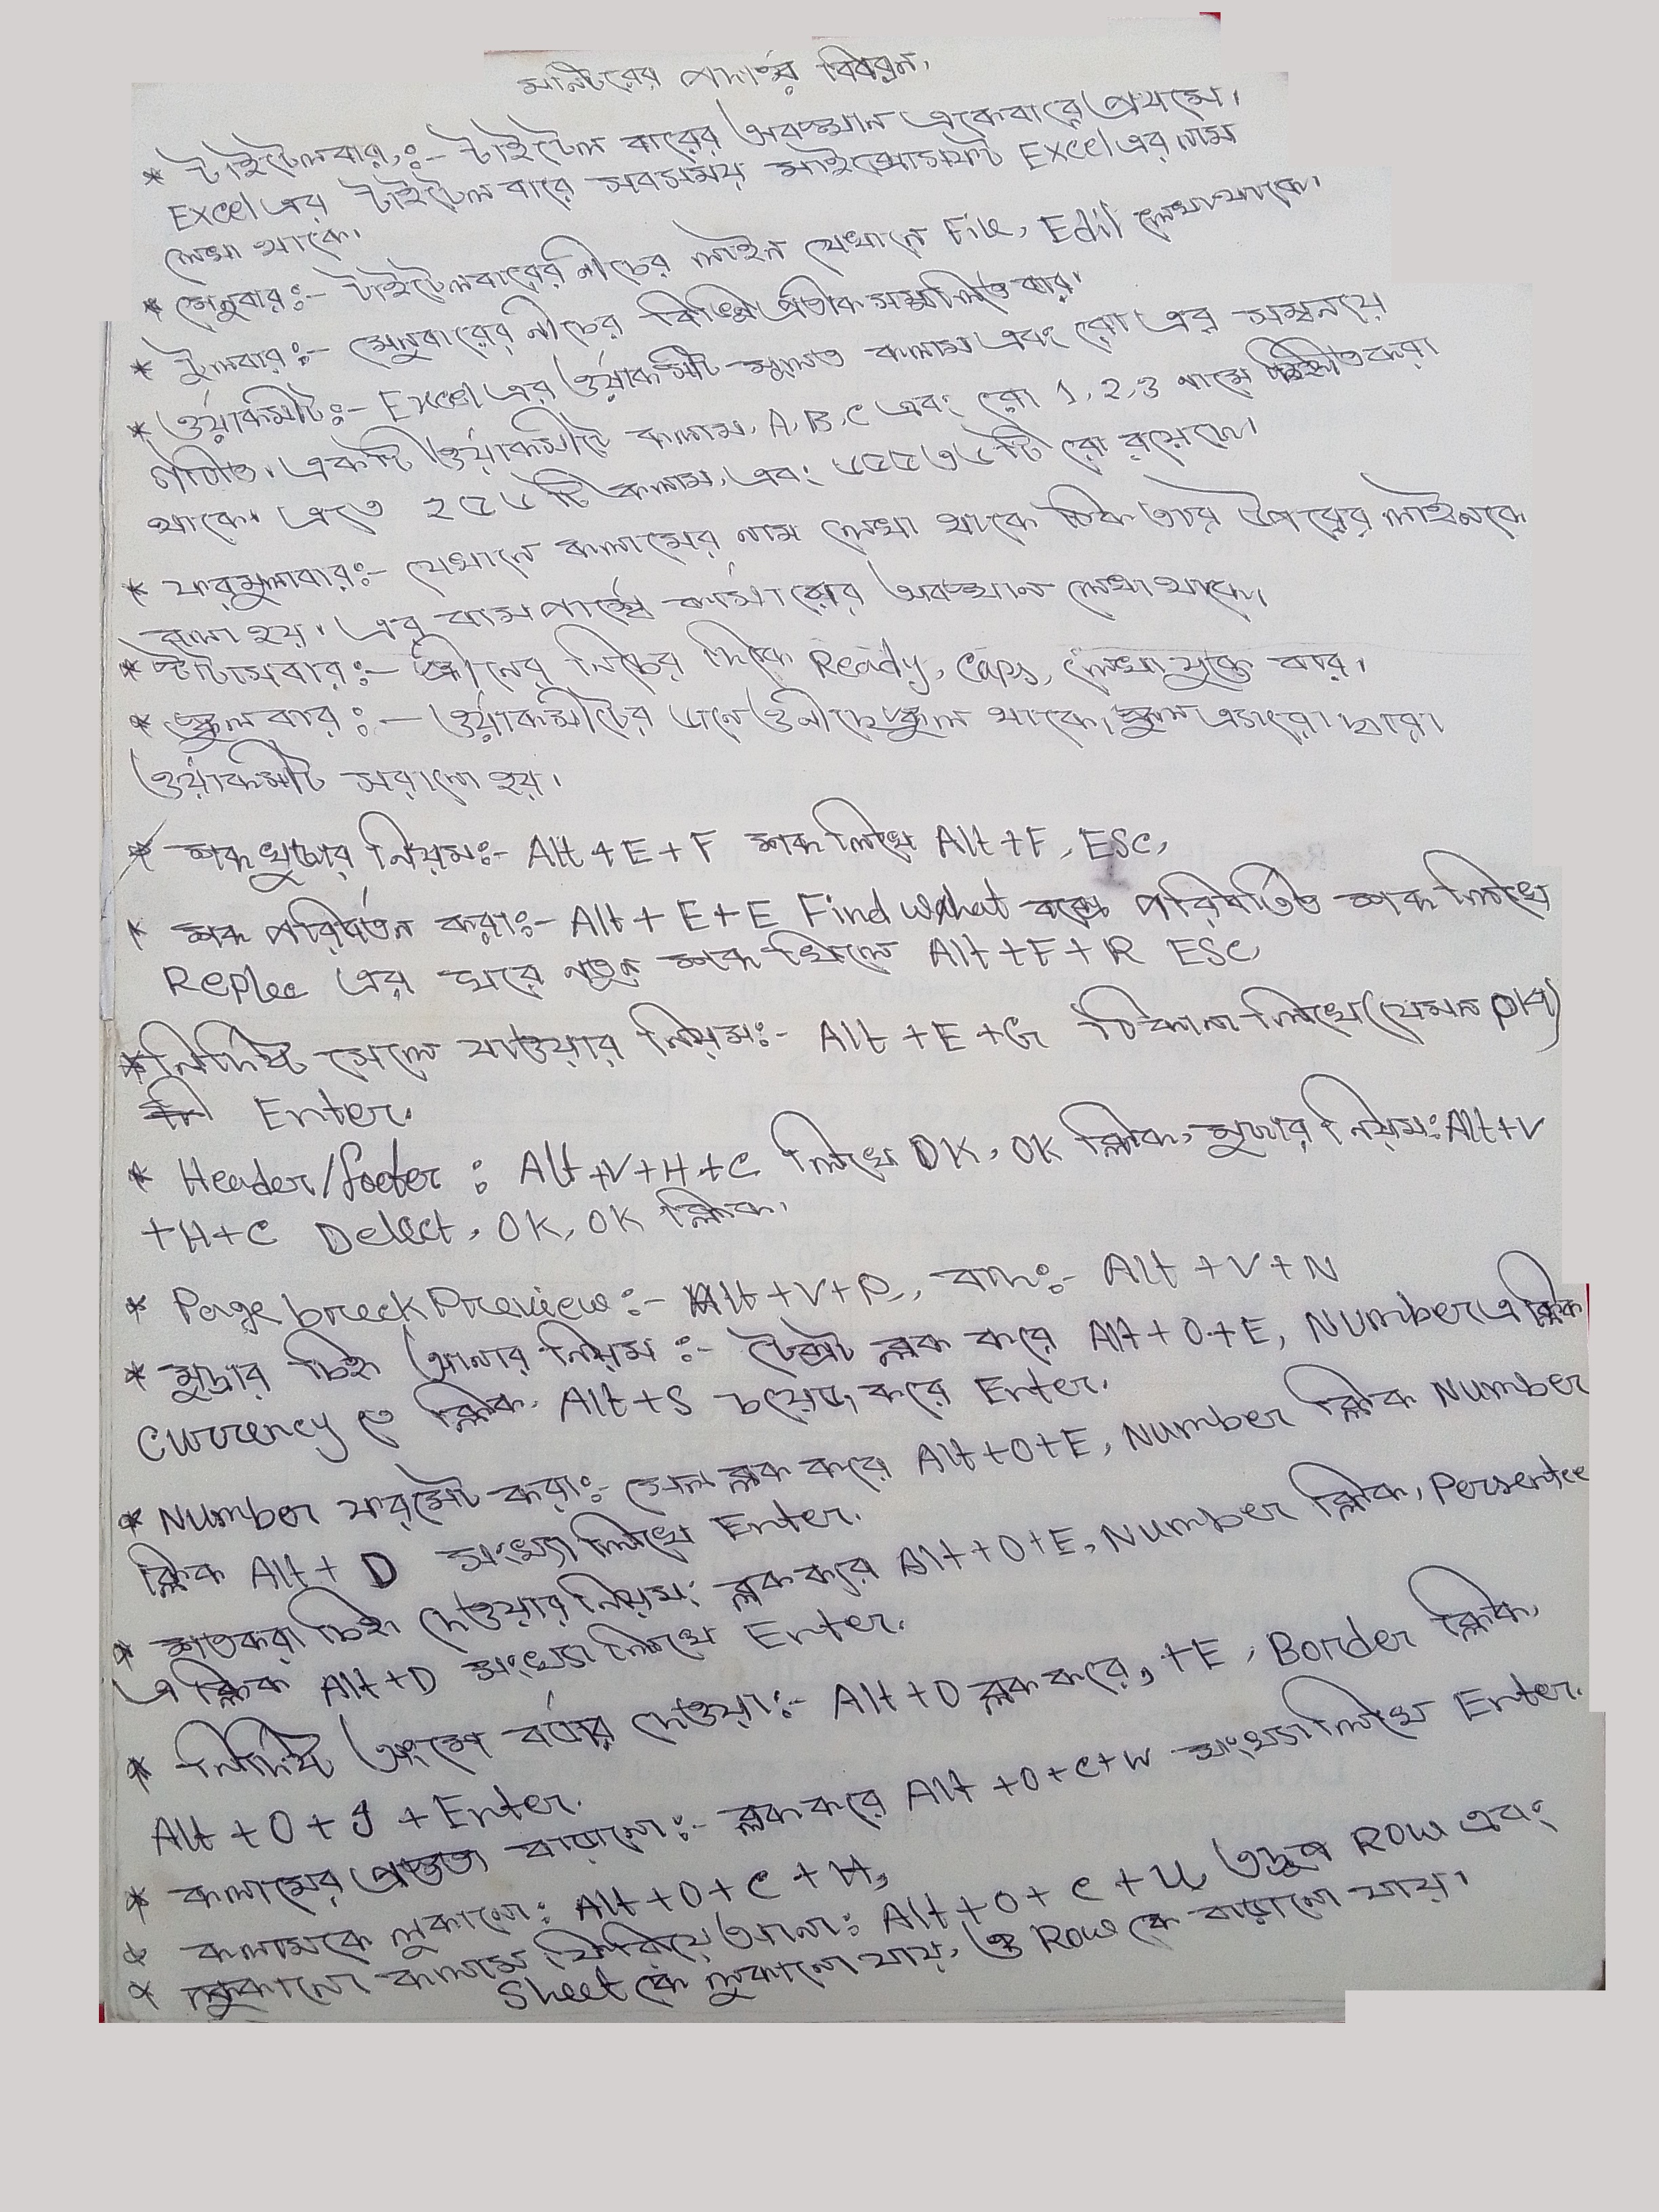 মনিটরের পদার্থর বিবরন,
* টাইটেলবার,ঃ- টাইটেল বারের অবস্থান একেবারে প্রথমে।
Excel এর টাইটেল বারে সবসময় মাইক্রোসফট Excel এর নাম
লেখা থাকে।
* মেনুবারঃ- টাইটেলবারের নীচের লাইন যেখানে File, Edit লেখা থাকে।
* টুলবারঃ- মেনুবারের নীচের বিভিন্ন প্রতীক সম্মলিত বার।
* ওর্য়াকসীটঃ- Excel এর ওর্য়াকসীট মুলত কলাম এবং রো এর সমন্বনয়ে
গঠিত। একটি ওর্য়াকসীটে কলাম, A, B, C এবং রো 1, 2, 3 নামে চিহ্নীত করা
থাকে। এতে ২৫৬ টি কলাম, এবং ৬৫৫৩৬ টি রো রয়েছে।
* ফরমুলাবারঃ- যেখানে কলামের নাম লেখা থাকে ঠিক তার উপরের লাইনকে
বলা হয়। এর বাম পার্শ্বে কার্সারের অবস্থান লেখা থাকে।
* স্টাটাসবারঃ- স্ক্রীনের নিচের দিকে Ready, Caps, লেখা যুক্ত বার।
* স্ক্রুল বারঃ- ওর্য়াকসীটের ডানে ও নীচে স্ক্রুল থাকে, স্ক্রুল এ্যারো দ্বারা
ওর্য়াকসীট সরানো হয়।
* শব্দ খুজার নিয়মঃ- Alt + E + F শব্দ লিখে Alt + F, ESC,
* শব্দ পরিবর্তন করাঃ- Alt + E + E Find What বক্সে পরিবর্তিত শব্দ লিখে
Replce এর ঘরে নতুন শব্দ লিখে Alt + F + R ESC,
* নির্দিষ্ট সেলে যাওয়ার নিয়মঃ- Alt + E + G ঠিকানা লিখে (যেমন D14)
Enter.
* Header/footer : Alt + V + H + C লিখে OK, OK ক্লিক, মুছার নিয়ম: Alt + V
+ H + C Delect, OK, OK ক্লিক।
* Page breck Preview :- Alt + V + P, বাদঃ- Alt + V + N
* মুদ্রার চিহ্ন আনার নিয়ম ঃ- টেক্সট ব্লক করে Alt + O + E, Number এ ক্লিক
Currency তে ক্লিক, Alt + S চয়েজ করে Enter.
* Number ফরমেট করাঃ- সেল ব্লক করে Alt + O + E, Number ক্লিক Number
ক্লিক Alt + D সংখ্যা লিখে Enter.
* শতকরা চিহ্ন দেওয়ার নিয়ম: ব্লক করে Alt + O + E, Number ক্লিক, Persentee
এ ক্লিক Alt + D সংখ্যা লিখে Enter.
* নির্দিষ্ট অংশে বর্ডার দেওয়া:- Alt + O ব্লক করে, + E, Border ক্লিক,
Alt + O + + Enter.
* কলামের প্রস্ততা বারানো:- ব্লক করে Alt + O + C + W সংখ্যা লিখে Enter.
* কলামকে লুকানো: Alt + O + C + H,
* লুকানো কলাম ফিরিয়ে আনা: Alt + O + C + U, তদ্রুপ Row এবং
Sheet কে লুকানো যায়, ও Row কে বারানো যায়।